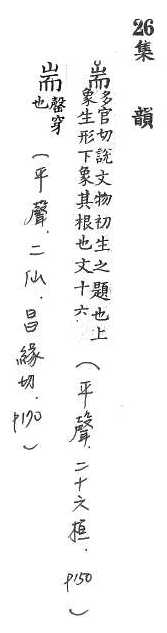 26集 韻
耑多官切說文物初生之題也上
象生形下象其根也文十六
(平聲.二十六桓. p150)
耑罄穿
也
(平聲.二仙.昌緣切. p190)